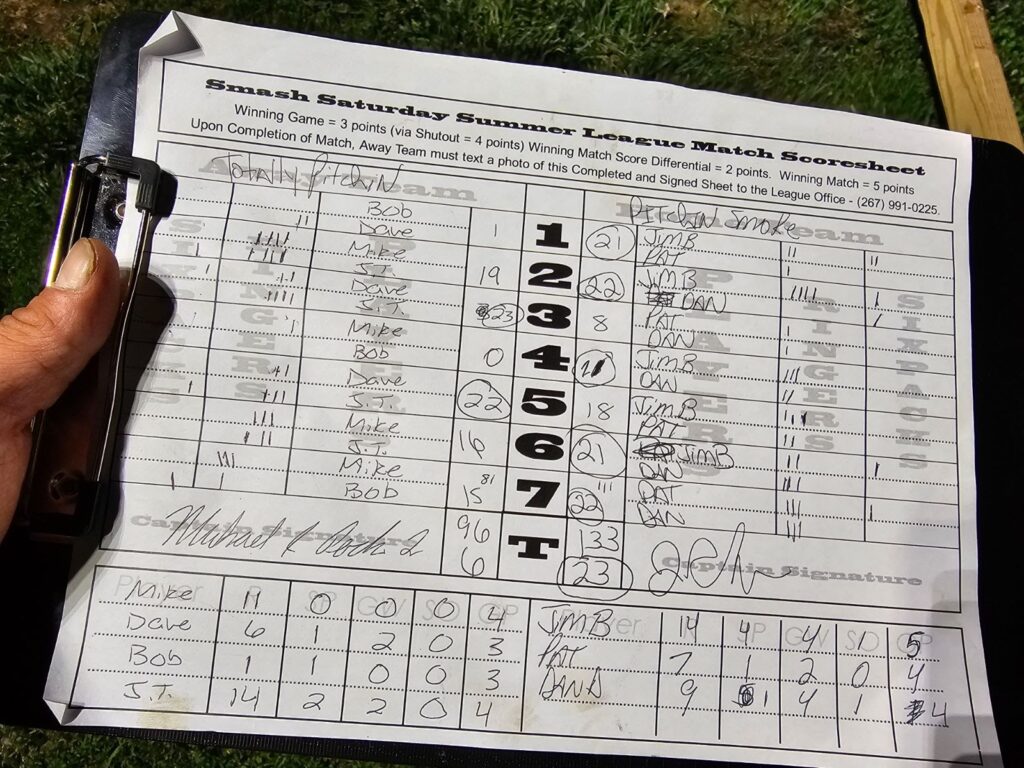 Smash Saturday Summer League Match Scoresheet
Winning Game = 3 points (via Shutout = 4 points) Winning Match Score Differential = 2 points. Winning Match = 5 points
Upon Completion of Match, Away Team must text a photo of this Completed and Signed Sheet to the League Office - (267) 991-0225.
Totally Pitchin Pitchin Smoke
Bob 1 1 21 Jim B
Dave PAT
Mike 19 2 22 Jim B
J.T. DAN
Dave 23 3 8 PAT
J.T. DAN
Mike 0 4 11 Jim B
Bob DAN
Dave 22 5 18 Jim B
J.T. PAT
Mike 16 6 21 Jim B
J.T. DAN
Mike 15 81 7 22 111 PAT
Bob DAN
Captain Signature 96 T 133 Captain Signature
6 23
Mike 11 0 0 0 4 Jim B 14 4 4 1 5
Dave 6 1 2 0 3 PAT 7 1 2 0 4
Bob 1 1 0 0 3 DAN D 9 1 4 1 4
J.T. 14 2 2 0 4